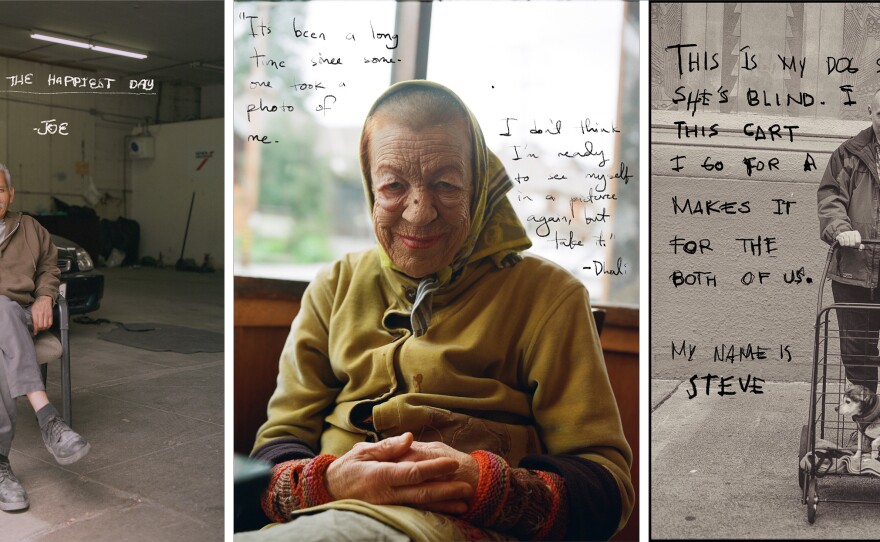 THE HAPPIEST DAY
-JOE
"Its been a long
time since some-
one took a
photo of
me.
I don't think
I'm ready
to see myself
in a picture
again, but
take it."
-Dhali
THIS IS MY DOG S
SHE'S BLIND. I
THIS CART
I GO FOR A
MAKES IT
FOR THE
BOTH OF US.
MY NAME IS
STEVE